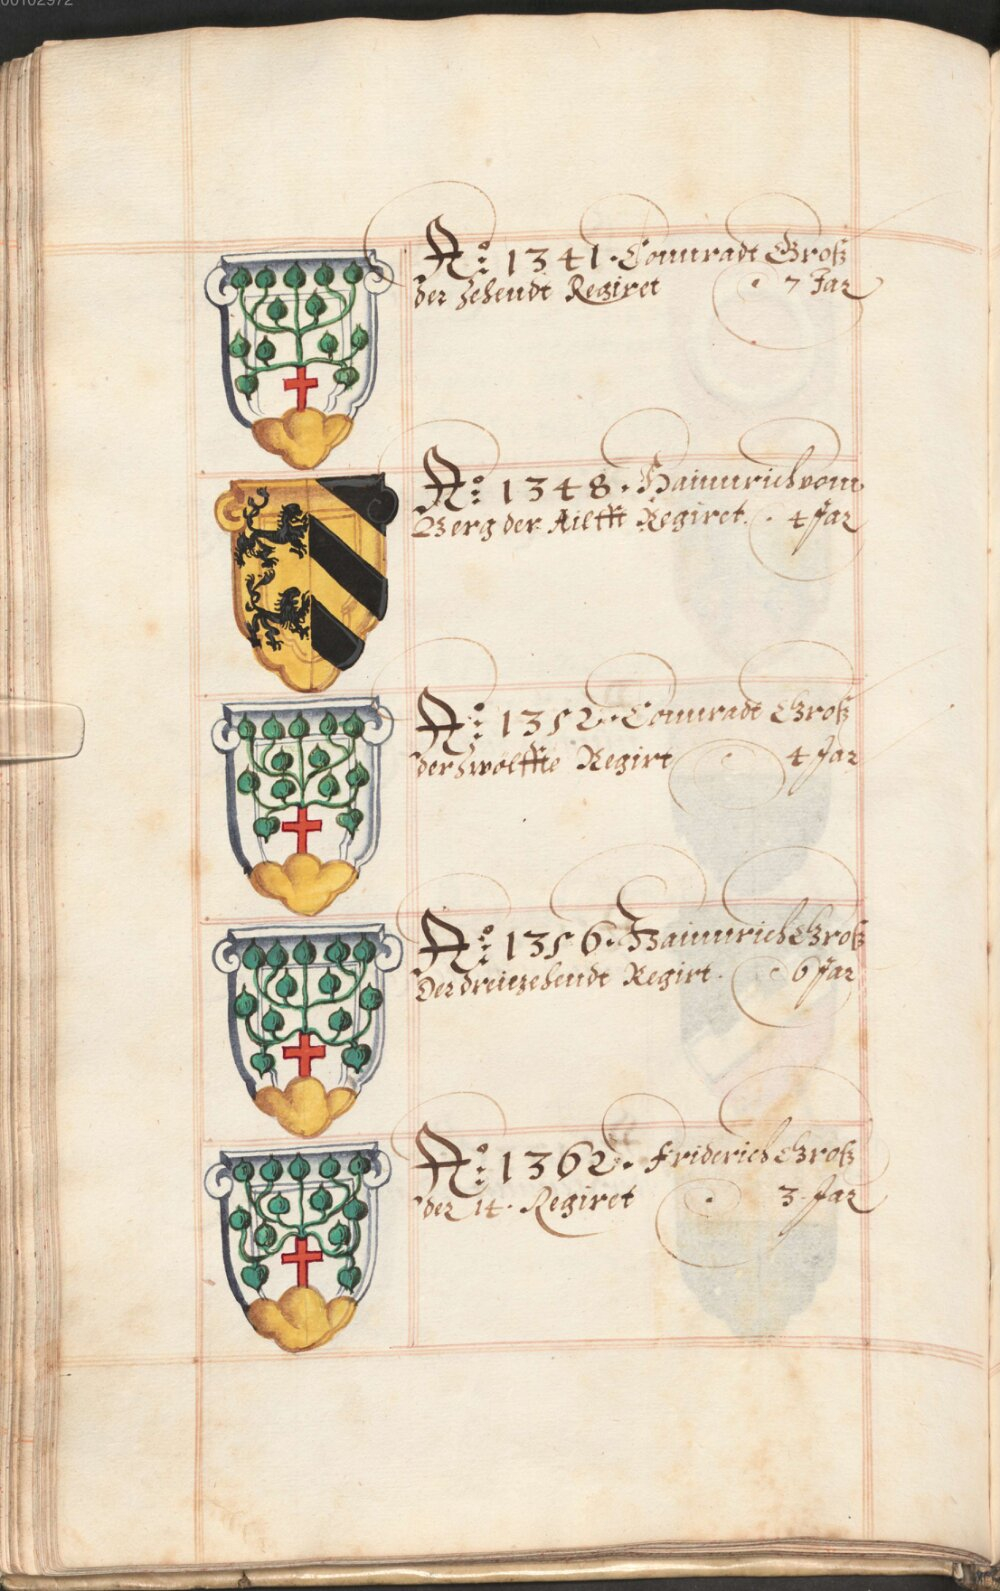 00102972
Aº: 1341. Connradt Groß
der zehendt Regiret . 7 Jar
Aº: 1348. Hainnrich vom
Berg der Ailfft Regiret. . 4 Jar
Aº: 1352. Connradt Groß
der zwölffte Regirt . 4 Jar
Aº: 1356. Hainnrich Groß
Der dreitzehendt Regirt. . 6 Jar
Aº: 1362. Friderich Groß
der 14. Regiret . 3. Jar